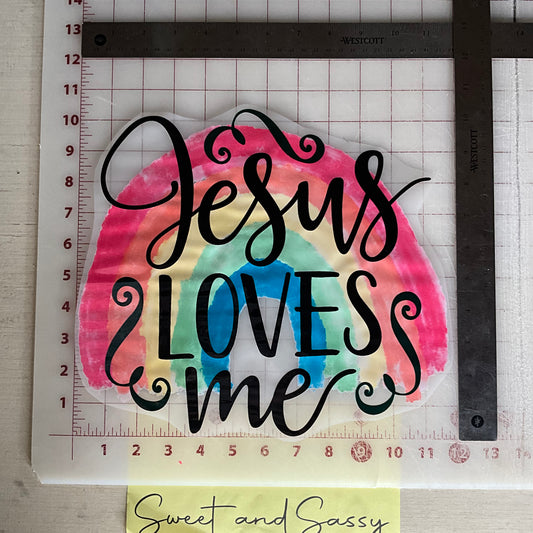 14
WESTCOTT
13
12
11
10
9
8
7
6
5
4
3
2
1
WESTCOTT
Jesus
LOVES
me
1 2 3 4 5 6 7 8 9 10 11 12 13 14
Sweet and Sassy